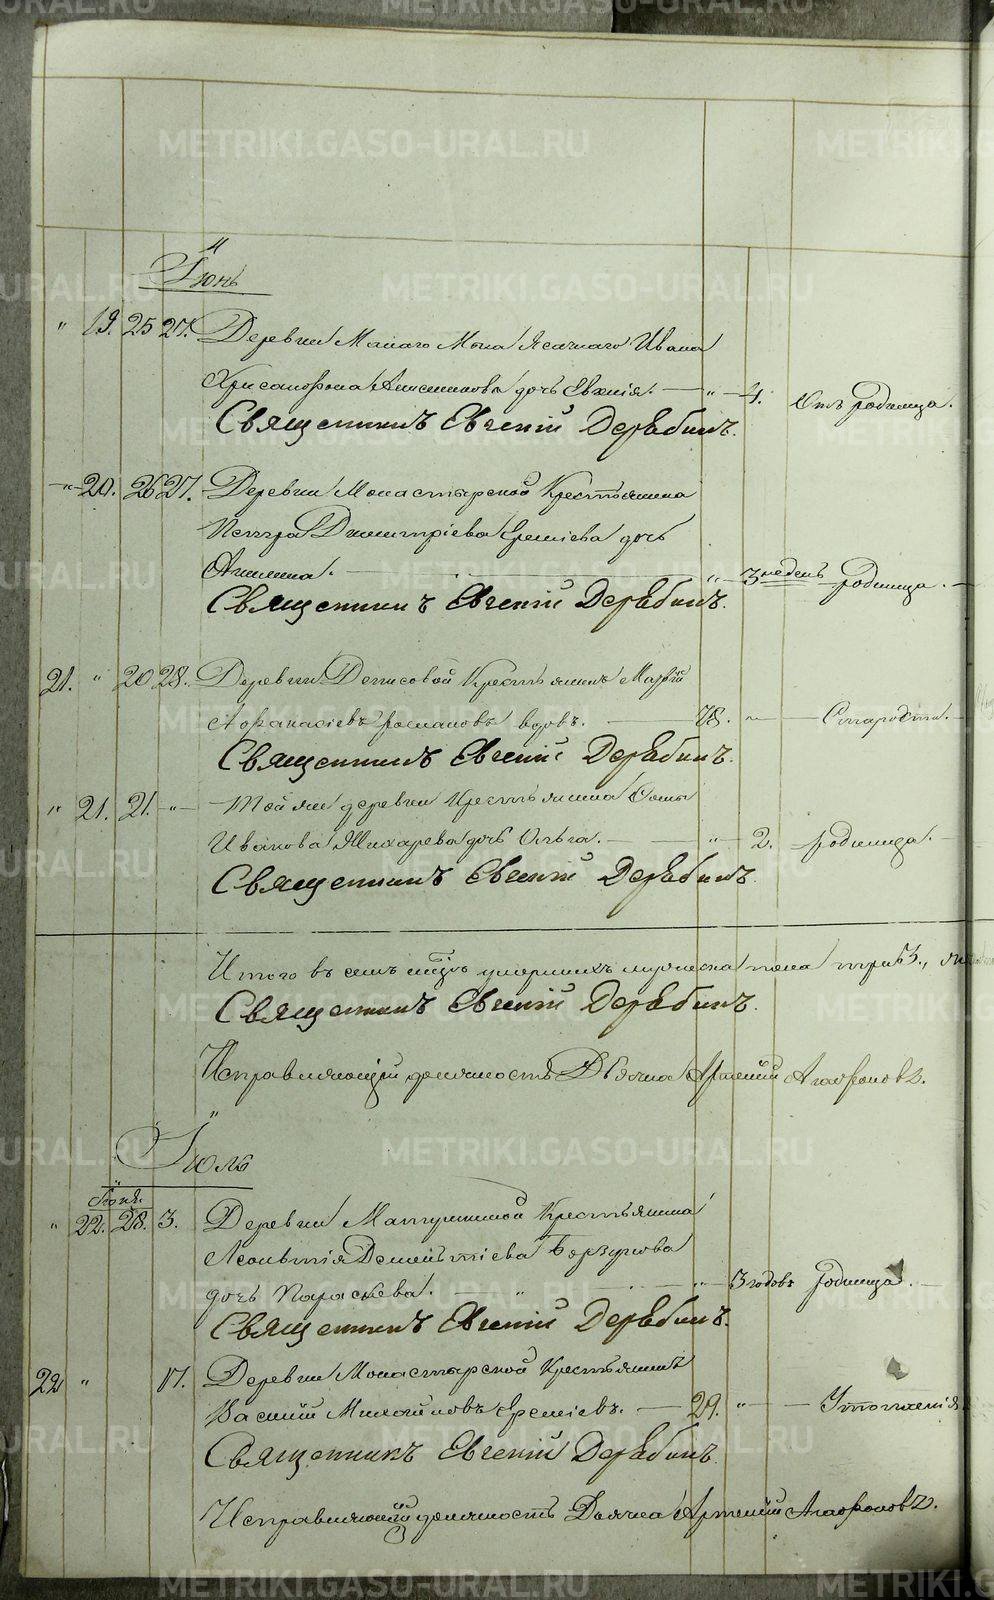 METRIKI.GASO-URAL.RU
Іюнь
" 19. 25 27. Деревни Малаго Мыса Ясачнаго Ивана
Хрисанфова дочь Евхнія. — " — 4. Отъ родимца.
Священникъ Евгеній Дерябинъ.
" 20. 26 27. Деревни Монастырской Крестьянина
Петра Димитріева Еремѣева дочь
Акилина. — " — 3 недель родимца. —
Священникъ Евгеній Дерябинъ.
21. " 20 28. Деревни Денисовой Крестьянинъ
Афанасіевъ вдовъ. — 78. — Старости. —
Священникъ Евгеній Дерябинъ.
" 21. 21. " Той же деревни Крестьянина Фомы
Иванова Жихарева дочь Ольга. — " — 2. родимца. —
Священникъ Евгеній Дерябинъ.
Итого въ семъ умершихъ мужеска пола три 3.,
Священникъ Евгеній Дерябинъ.
Исправляющій должность Дьячка Артемій Агафоновъ.
Іюль
Іюня.
" 22. 28. 3. Деревни Матушкиной Крестьянина
Леонтія Дементіева
дочь Параскева. — " — 3 годовъ родимца. —
Священникъ Евгеній Дерябинъ.
22 " 17. Деревни Монастырской Крестьянинъ
Василій Михайловъ Еремѣевъ. — 29. " — Утопленія.
Священникъ Евгеній Дерябинъ.
Исправляющій должность Дьячка Артемій Агафоновъ.